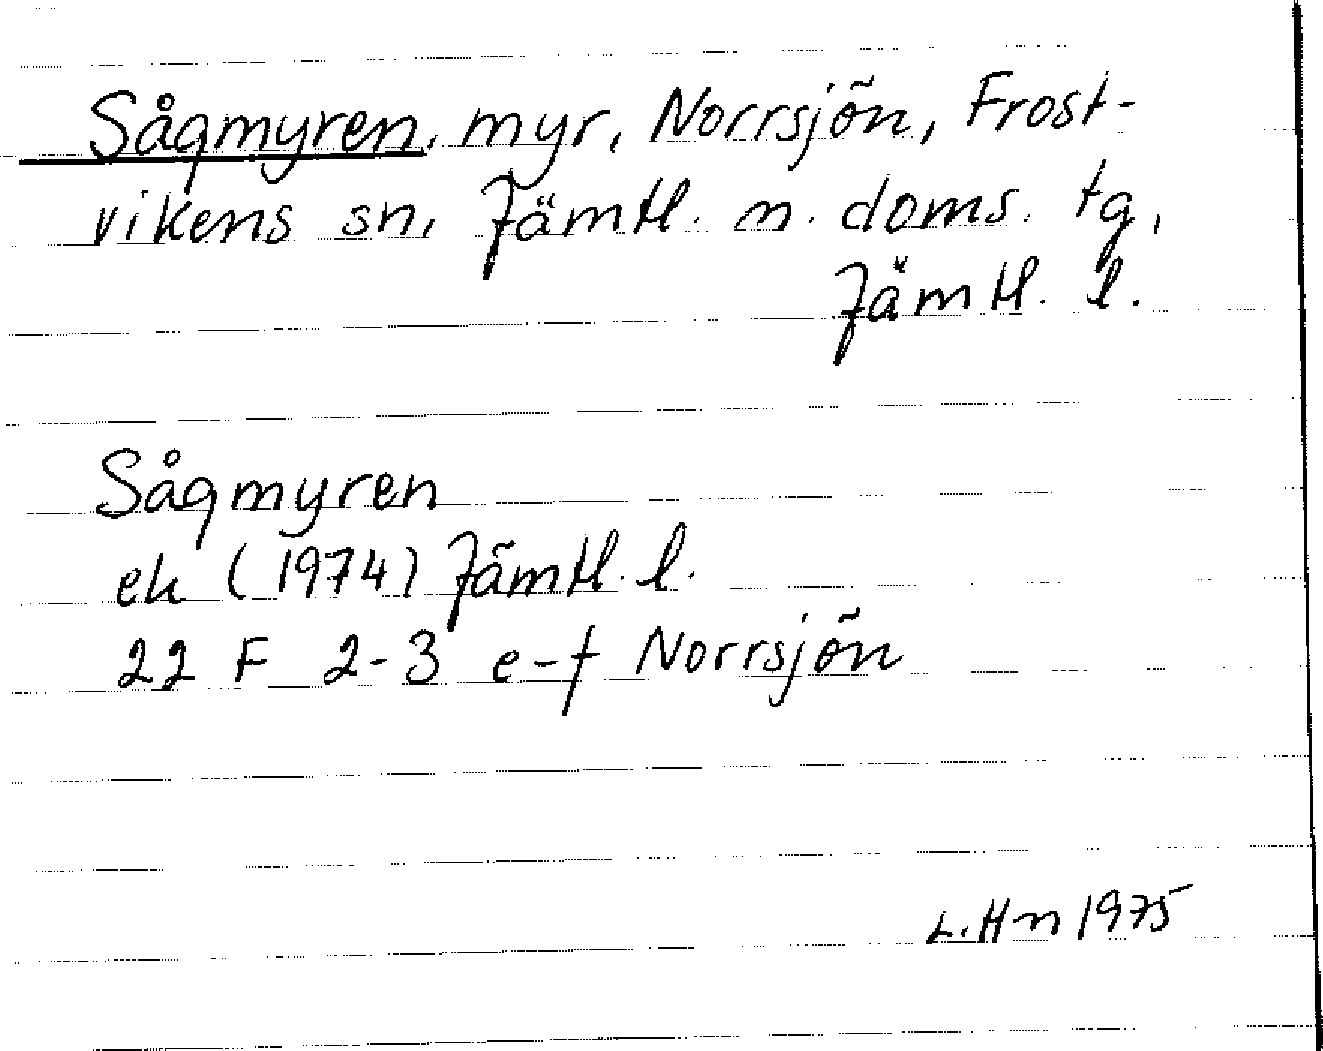 Sågmyren, myr, Norrsjön, Frost-
vikens sn, Jämtl. n. doms. tg,
Jämtl. l.
Sågmyren
ek (1974) Jämtl. l.
22 F 2-3 e-f Norrsjön
L. Hn 1975